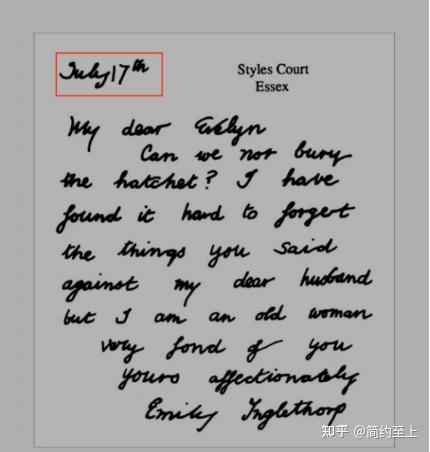 July 17th
Styles Court
Essex
My dear Evelyn
Can we not bury
the hatchet? I have
found it hard to forgert
the things you said
against my dear husband
but I am an old woman
very fond of you
yours affectionately
Emily Inglethorp
知乎 @简约至上